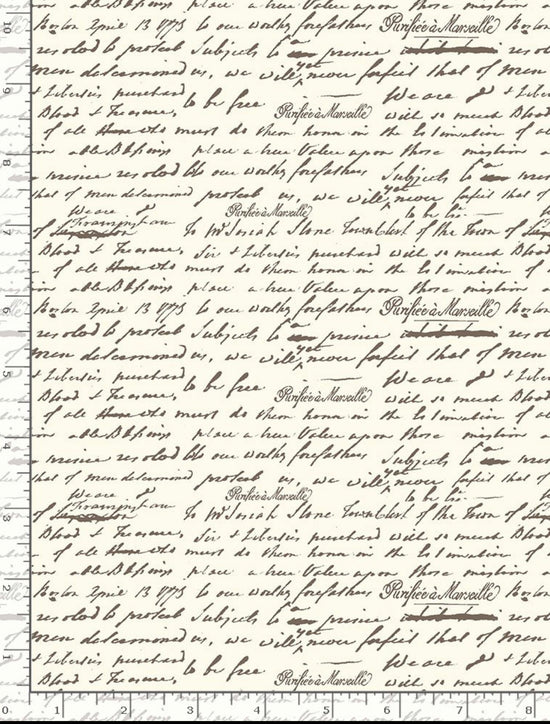 on able Blessings place a true Value upon those mention on
10 Boston April 13 1773 to our worthy forefathers Purifiée à Marseille Boston
resolvd to protect Subjects to a prince reso
men determined us, we will yet never forfeit that of men
9 & Liberties purchased to be free We are & & Liberties
Blood & Treasure, Purifiée à Marseille with so much Blood &
of all who must do them honor in the Estimation of all
8 on able Blessings place a true Value upon those mention on
a prince resolvd to our worthy forefathers Subjects to a prince
that of men determined protect us, we will yet never forfeit that of
We are & Purifiée à Marseille to be
7 of Framingham To Mr Josiah Stone Townclerk of the Town of
Blood & Treasure, Sir & Liberties purchased with so much Blood &
of all who must do them honor in the Estimation of all
on able Blessings place a true Value upon those mention on
6 Boston April 13 1773 to our worthy forefathers Purifiée à Marseille Boston
resolvd to protect Subjects to a prince reso
men determined us, we will yet never forfeit that of men
5 & Liberties purchased to be free We are & & Liberties
Blood & Treasure, Purifiée à Marseille with so much Blood &
of all who must do them honor in the Estimation of all
4 on able Blessings place a true Value upon those mention on
a prince resolvd to our worthy forefathers Subjects to a prince
that of men determined protect us, we will yet never forfeit that of
We are & Purifiée à Marseille to be
3 of Framingham To Mr Josiah Stone Townclerk of the Town of
Blood & Treasure, Sir & Liberties purchased with so much Blood &
of all who must do them honor in the Estimation of all
on able Blessings place a true Value upon those mention on
2 Boston April 13 1773 to our worthy forefathers Purifiée à Marseille Boston
resolvd to protect Subjects to a prince reso
men determined us, we will yet never forfeit that of men
1 & Liberties purchased to be free We are & & Liberties
Blood & Treasure, Purifiée à Marseille with so much Blood &
0 1 2 3 4 5 6 7 8